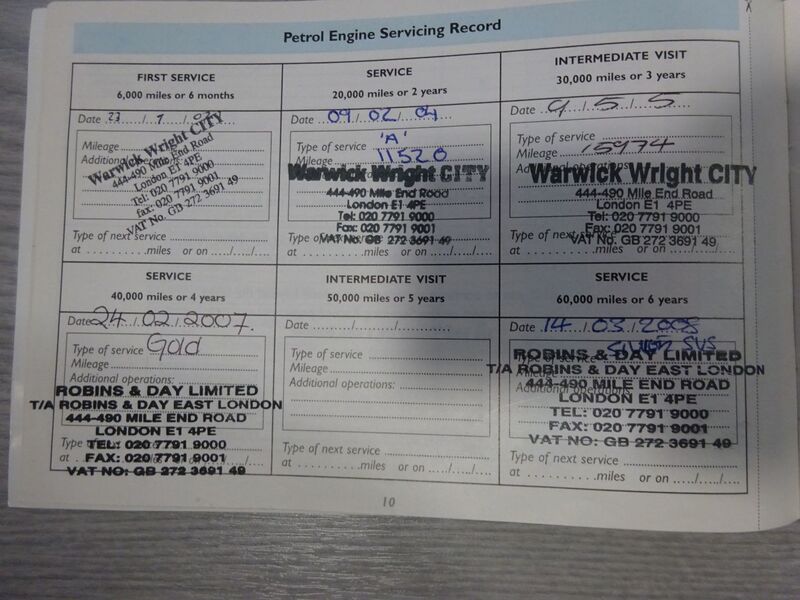 Petrol Engine Servicing Record
FIRST SERVICE
6,000 miles or 6 months
Date 23/
Mileage
Additional
Warwick Wright CITY
444-490 Mile End Road
London E1 4PE
Tel: 020 7791 9000
fax: 020 7791 9001
VAT No. GB 272 3691 49
Type of next service
at ..........miles or on ...../...../.....
SERVICE
20,000 miles or 2 years
Date 09/02/04
Type of service 'A'
Mileage 11520
Warwick Wright CITY
444-490 Mile End Road
London E1 4PE
Tel: 020 7791 9000
Fax: 020 7791 9001
VAT No. GB 272 3691 49
Type of next service
at ..........miles or on ...../...../.....
INTERMEDIATE VISIT
30,000 miles or 3 years
Date 9/5/5
Type of service
Mileage 15974
Additional operations:
Warwick Wright CITY
444-490 Mile End Road
London E1 4PE
Tel: 020 7791 9000
Fax: 020 7791 9001
VAT No. GB 272 3691 49
Type of next service
at ..........miles or on ...../...../.....
SERVICE
40,000 miles or 4 years
Date 24/02/2007.
Type of service Gold
Mileage
Additional operations:
ROBINS & DAY LIMITED
T/A ROBINS & DAY EAST LONDON
444-490 MILE END ROAD
LONDON E1 4PE
TEL: 020 7791 9000
FAX: 020 7791 9001
VAT NO: GB 272 3691 49
at ..........miles or on ...../...../.....
INTERMEDIATE VISIT
50,000 miles or 5 years
Date ........../........../..........
Type of service
Mileage
Additional operations:
Type of next service
at ..........miles or on ...../...../.....
SERVICE
60,000 miles or 6 years
Date 14/03/2008
Type of service SILVER SVS
ROBINS & DAY LIMITED
T/A ROBINS & DAY EAST LONDON
444-490 MILE END ROAD
LONDON E1 4PE
TEL: 020 7791 9000
FAX: 020 7791 9001
VAT NO: GB 272 3691 49
Type of next service
at ..........miles or on ...../...../.....
10